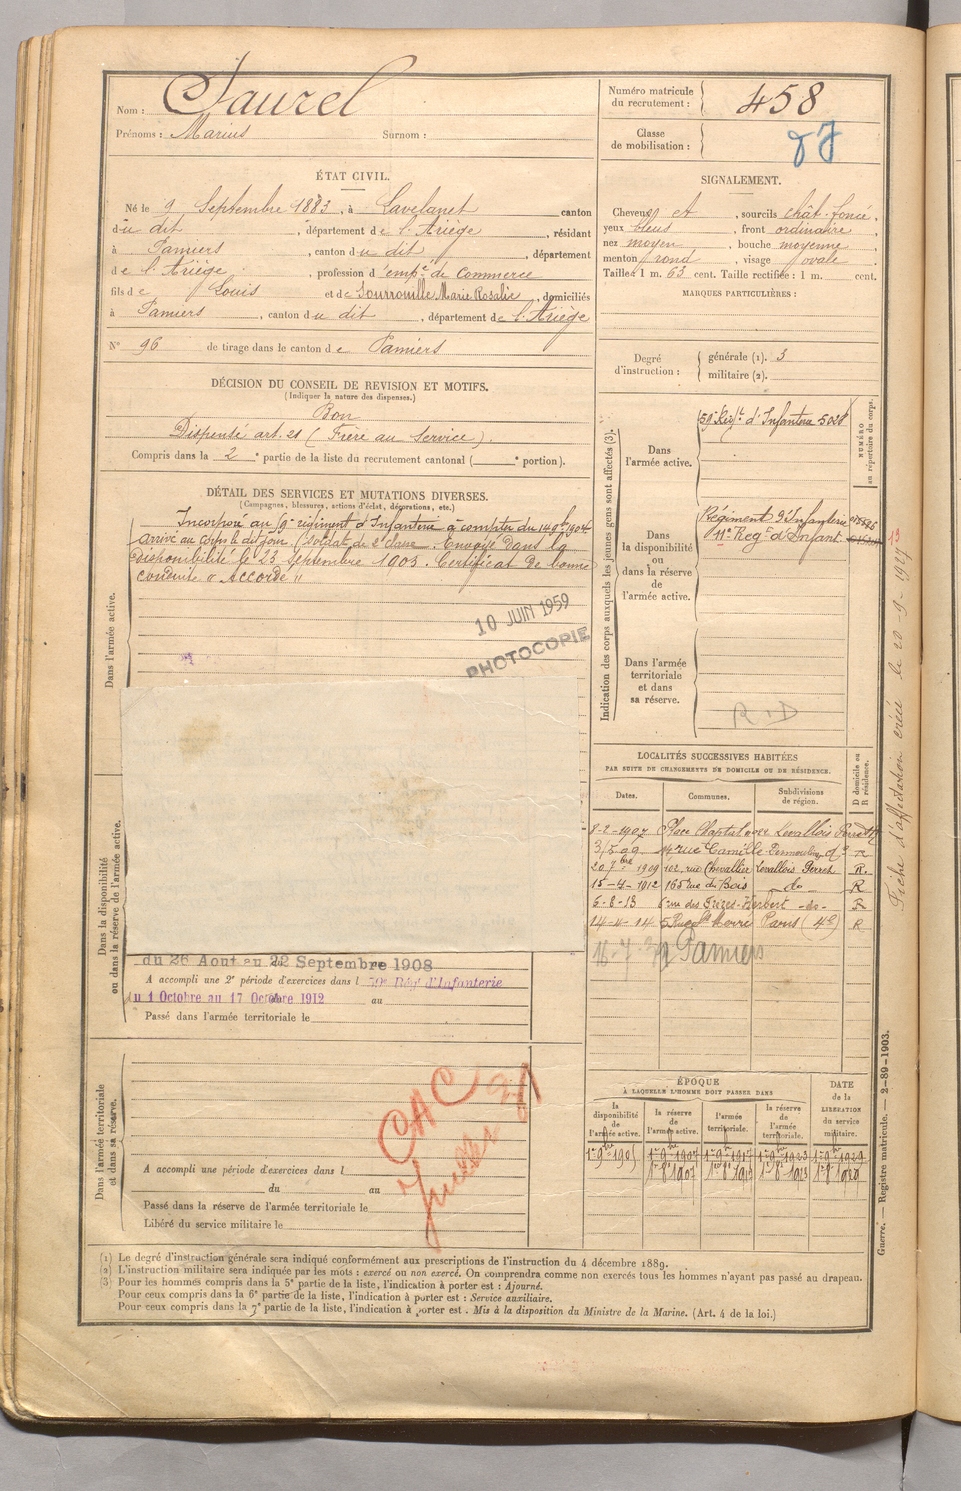 Nom :
Prénoms : Marius Surnom :
Numéro matricule du recrutement : 458
Classe de mobilisation :
ÉTAT CIVIL.
Né le 9 Septembre 1883, à Lavelanet canton
du dit, département de l'Ariège, résidant
à Pamiers, canton du dit, département
de l'Ariège, profession d'empé de Commerce
fils de Louis et de Marie Rosalie, domiciliés
à Pamiers, canton du dit, département de l'Ariège
N° 96 de tirage dans le canton de Pamiers
SIGNALEMENT.
Cheveux et, sourcils chât-foncé,
yeux bleus, front ordinaire,
nez moyen, bouche moyenne
menton rond, visage ovale
Taille : 1 m. 63 cent. Taille rectifiée : 1 m. cent.
MARQUES PARTICULIÈRES :
Degré d'instruction : générale (1). 3
militaire (2).
DÉCISION DU CONSEIL DE REVISION ET MOTIFS.
(Indiquer la nature des dispenses.)
Bon
Dispensé art. 21 (Frère au Service).
Compris dans la 2e partie de la liste du recrutement cantonal ( e portion).
DÉTAIL DES SERVICES ET MUTATIONS DIVERSES.
(Campagnes, blessures, actions d'éclat, décorations, etc.)
Dans l'armée active.
Incorporé au 59e régiment d'Infanterie à compter du 14 9bre 1904
arrivé au corps le dit jour. Soldat de 2e classe. Envoyé dans la
disponibilité le 23 Septembre 1905. Certificat de bonne
conduite "Accordé"
10 JUIN 1959
PHOTOCOPIE
Dans la disponibilité
ou dans la réserve de l'armée active.
du 26 Aout au 22 Septembre 1908
A accompli une 2e période d'exercices dans l 59e Rég. d'Infanterie
du 1 Octobre au 17 Octobre 1912 au
Passé dans l'armée territoriale le
Dans l'armée territoriale
et dans sa réserve.
CAC
Juillet
A accompli une période d'exercices dans l
du au
Passé dans la réserve de l'armée territoriale le
Libéré du service militaire le
Indication des corps auxquels les jeunes gens sont affectés (3).
NUMÉRO au répertoire du corps.
Dans l'armée active.
59e Régt d'Infanterie 5028
Dans la disponibilité ou dans la réserve de l'armée active.
Régiment d'Infanterie
11e Régt d'Infant.
Dans l'armée territoriale et dans sa réserve.
Fiche d'affectation créée le 20-9-1927
LOCALITÉS SUCCESSIVES HABITÉES
PAR SUITE DE CHANGEMENTS DE DOMICILE OU DE RÉSIDENCE.
Dates. Communes. Subdivisions de région. D domicile ou R résidence.
8-2-1907 Place Chaptal Levallois Perret
rue Camille Desmoulins R
20 7bre 1909 102, rue Chevallier Levallois Perret R.
15-4-1912 165 rue du Bois do R
6-8-13 R
14-4-14 Paris (4e) R
Pamiers
ÉPOQUE
À LAQUELLE L'HOMME DOIT PASSER DANS
la disponibilité de l'armée active. la réserve de l'armée active. l'armée territoriale. la réserve de l'armée territoriale. DATE de la LIBÉRATION du service militaire.
1er 9bre 1905 1er 9bre 1907 1er 9bre 1917 1er 9bre 1923 1er 9bre 1929
Guerre. — Registre matricule. — 2-89-1903.
(1) Le degré d'instruction générale sera indiqué conformément aux prescriptions de l'instruction du 4 décembre 1889.
(2) L'instruction militaire sera indiquée par les mots : exercé ou non exercé. On comprendra comme non exercés tous les hommes n'ayant pas passé au drapeau.
(3) Pour les hommes compris dans la 5e partie de la liste, l'indication à porter est : Ajourné.
Pour ceux compris dans la 6e partie de la liste, l'indication à porter est : Service auxiliaire.
Pour ceux compris dans la 7e partie de la liste, l'indication à porter est : Mis à la disposition du Ministre de la Marine. (Art. 4 de la loi.)